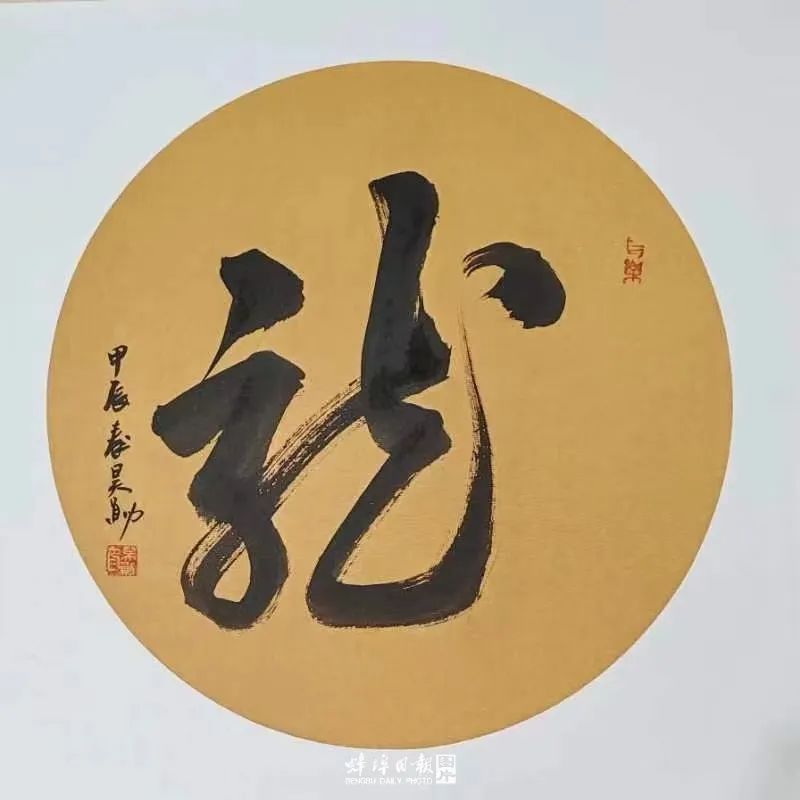 龍
甲辰春吴勛
蚌埠日報 图片
BENGBU DAILY PHOTO